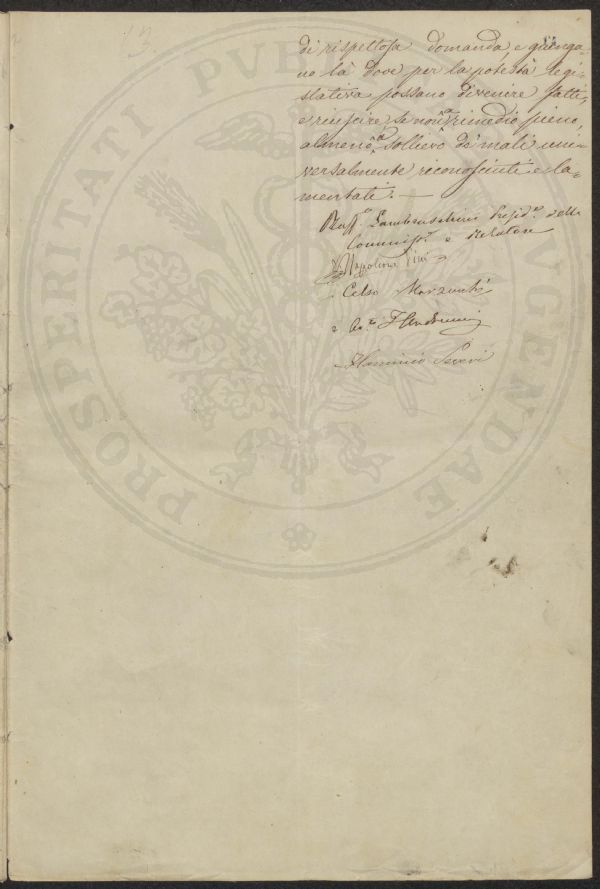 13.
di rispettosa domanda, e giunga-
no là dove per la potestà legi-
slativa possano divenire fatti,
e riuscire se non a rimedio pieno,
almeno a sollievo de' mali uni-
versalmente riconosciuti e la-
mentati. —
Raff.o Lambruschini Presid.e della
Commiss.e e Relatore
Napoleone Pini
Celso Marzucchi
Flaminio Severi
PROSPERITATI PUBL AUGENDAE